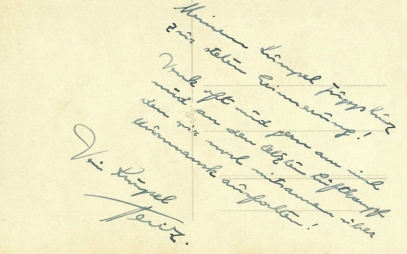 Meinem Kumpel
zur steten Erinnerung!
Denk oft und gern an mich
und an den letzten Luftkampf
den wir noch mitsammen über
Murmansk ausfochten!
Dein Kumpel
Heinz.